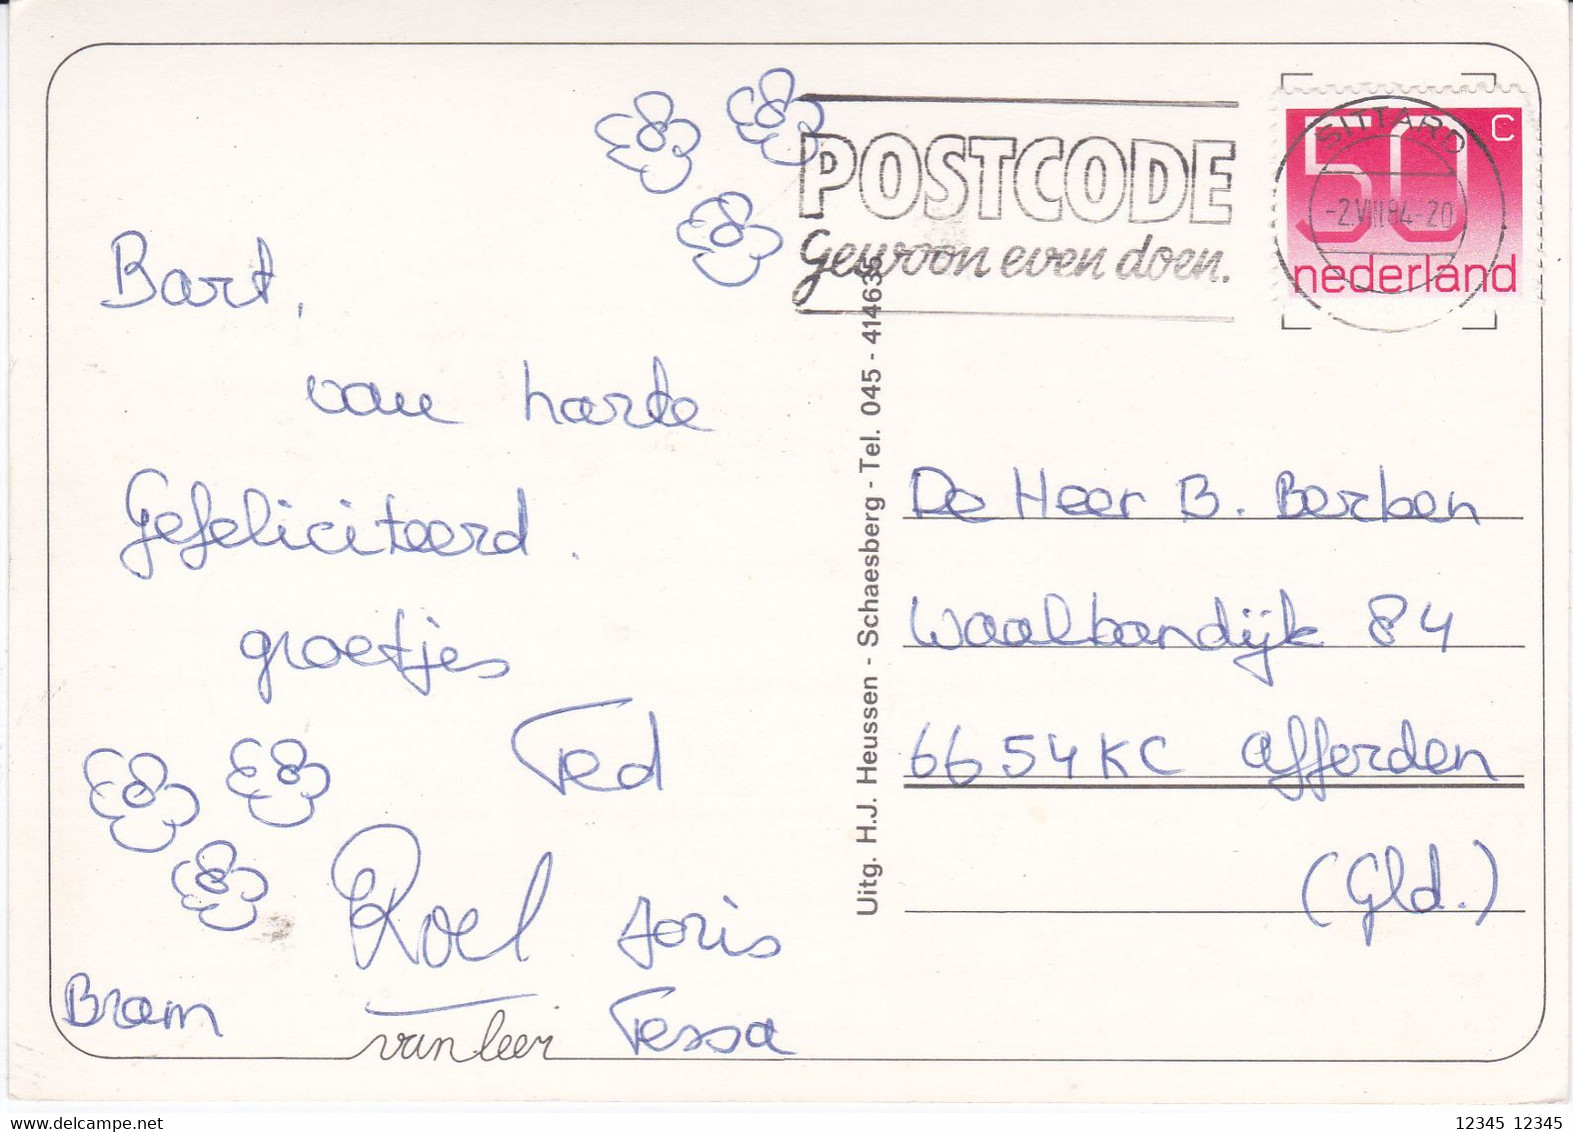 Bart,
van harte
Gefeliciteerd.
groetjes
Ted
Roel Joris
Bram Tessa
van leer
Uitg. H.J. Heussen - Schaesberg - Tel. 045 - 414635
POSTCODE
Gewoon even doen.
SITTARD
-2.VIII.84-20
50 c
nederland
De Heer B. Berben
Waalbandijk 84
6654KC Afferden
(Gld.)
12345 12345